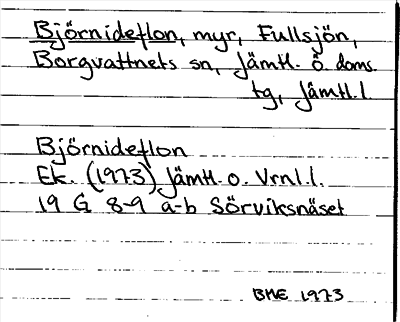 Björnideflon, myr, Fullsjön,
Borgvattnets sn, Jämtl. ö. doms.
tg, Jämtl. l
Björnideflon
Ek. (1973) Jämtl. o. Vrnl. l.
19 G 8-9 a-b Sörviksnäset
BME 1973